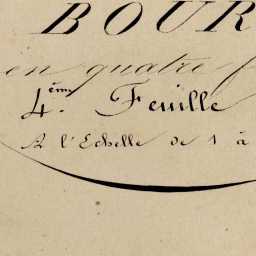 BOUR
en quatre f
4.ème Feuille
A l'Echelle de 1 à